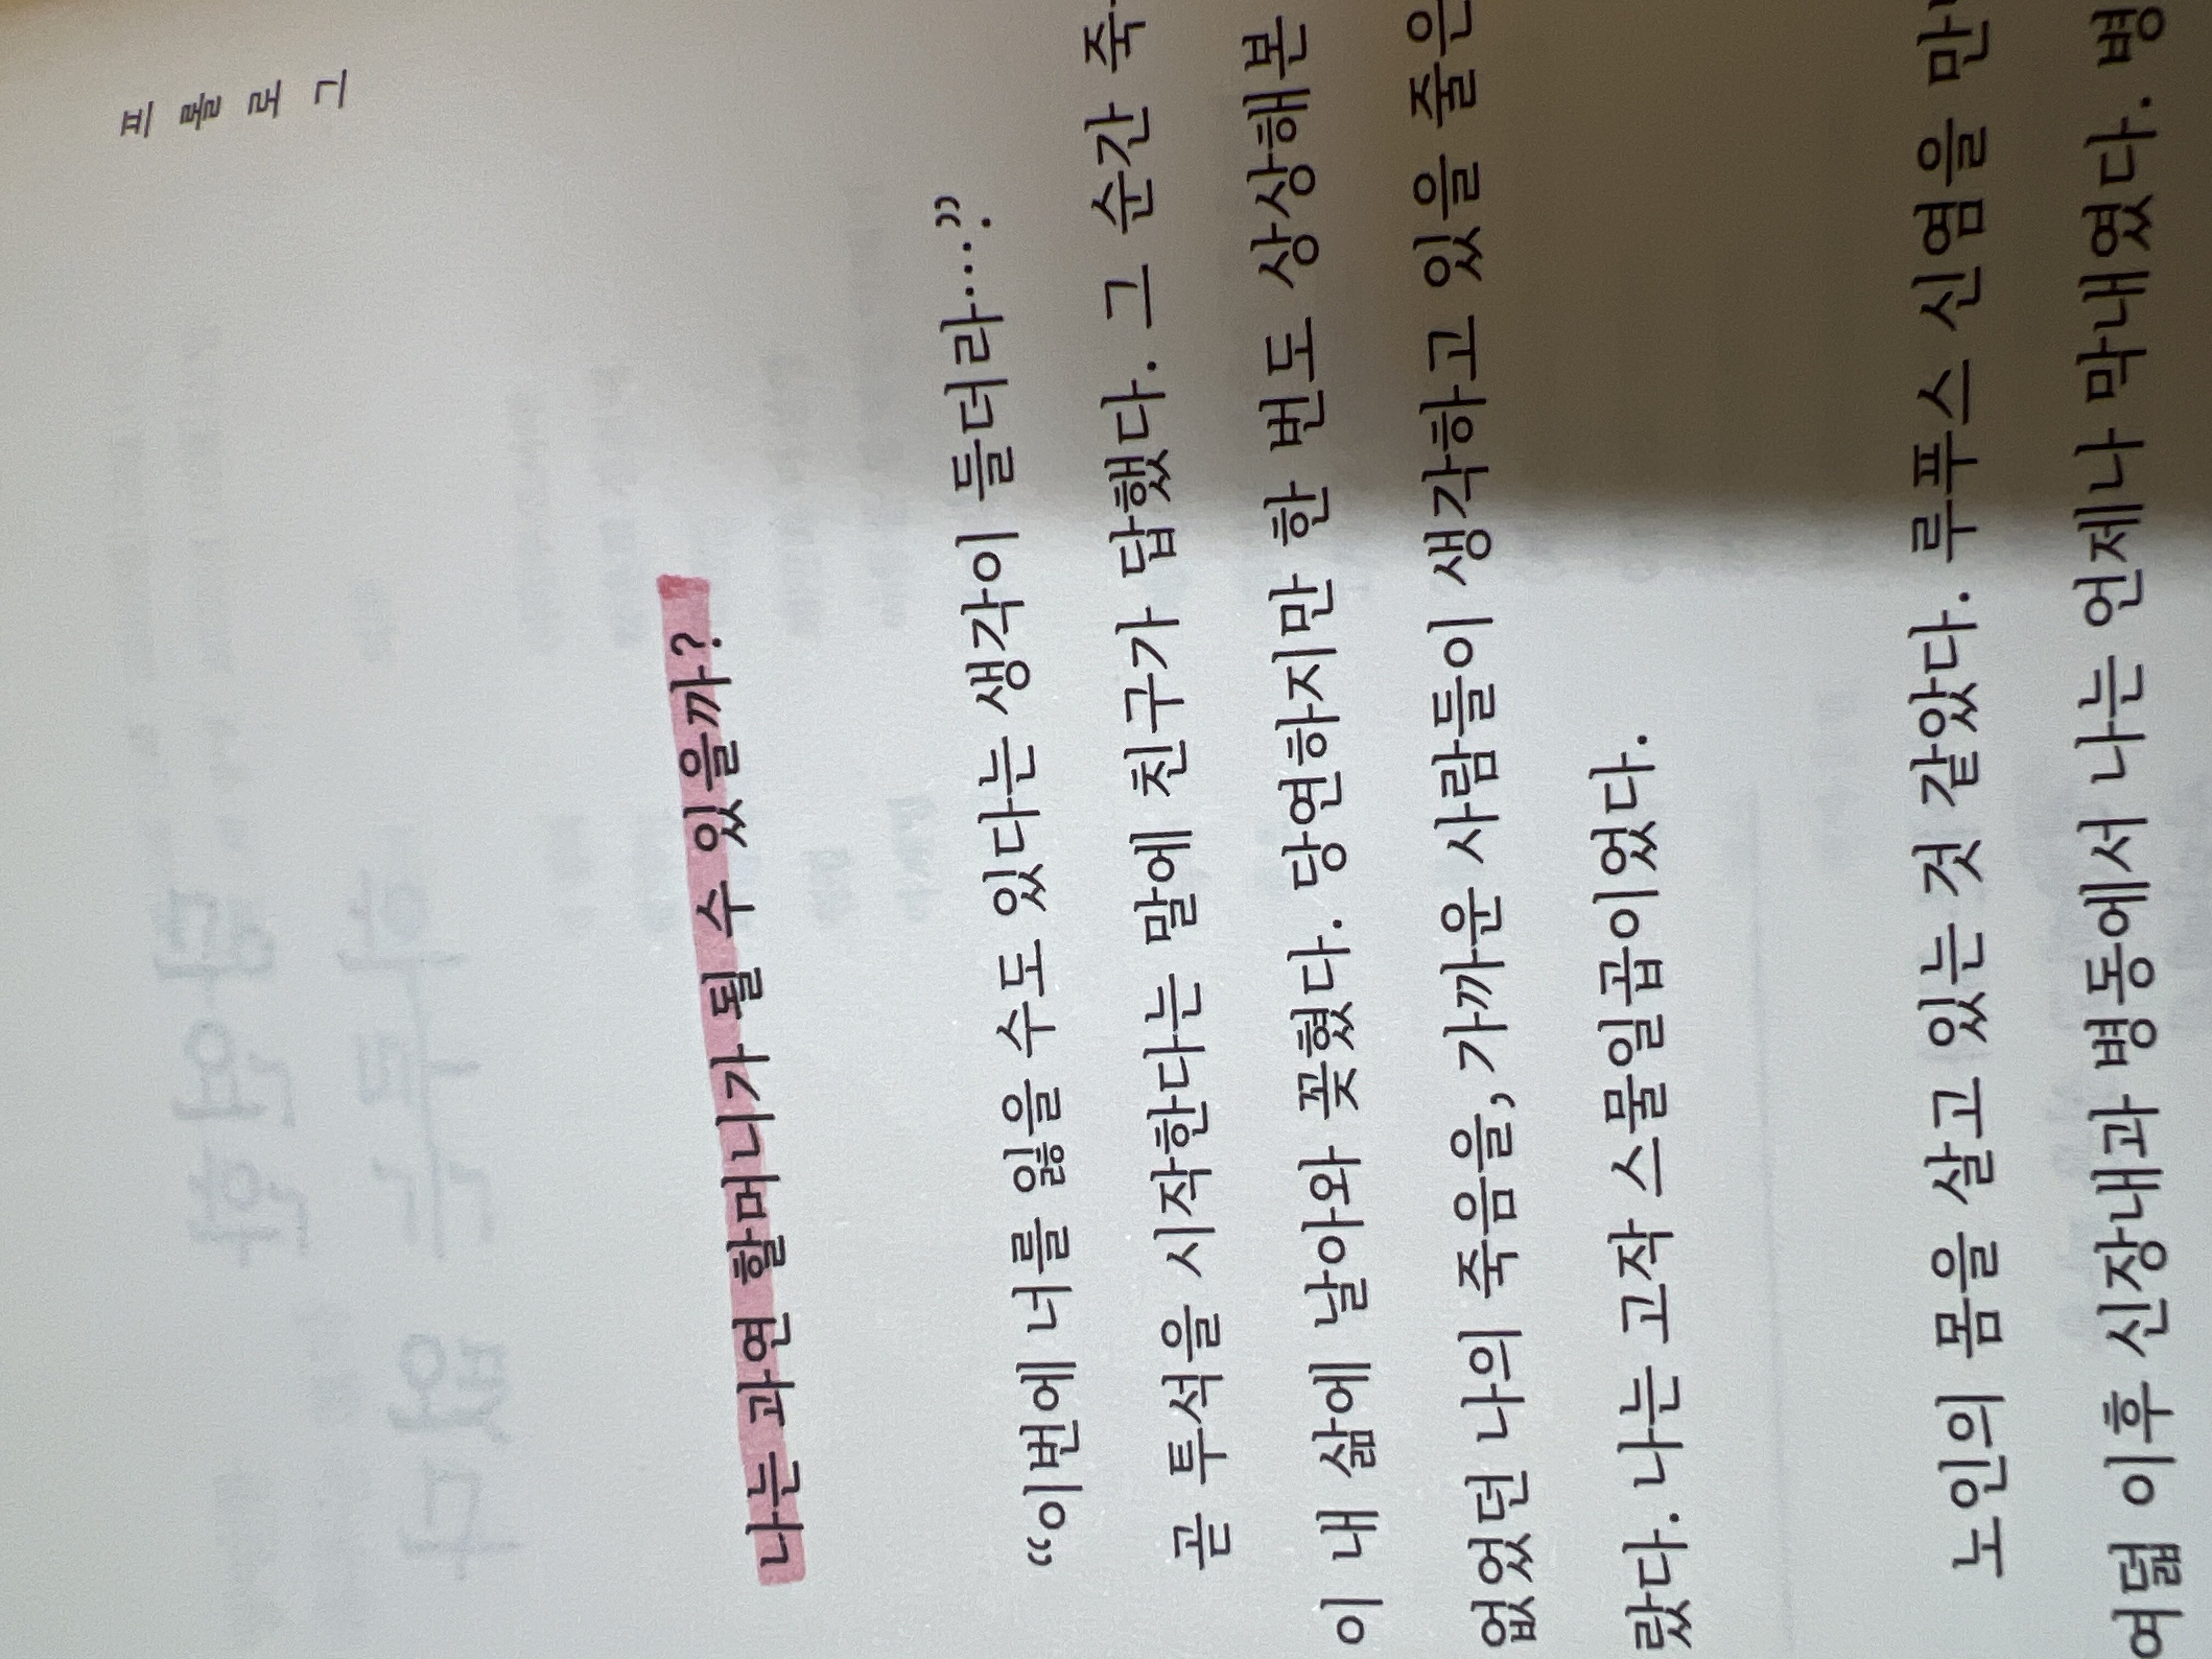 프롤로그
나는 과연 할머니가 될 수 있을까?
“이번에 너를 잃을 수도 있다는 생각이 들더라….”
곧 투석을 시작한다는 말에 친구가 답했다. 그 순간 죽
이 내 삶에 날아와 꽂혔다. 당연하지만 한 번도 상상해본
없었던 나의 죽음을, 가까운 사람들이 생각하고 있을 줄은
랐다. 나는 고작 스물일곱이었다.
노인의 몸을 살고 있는 것 같았다. 루푸스 신염을 만
여덟 이후 신장내과 병동에서 나는 언제나 막내였다. 병